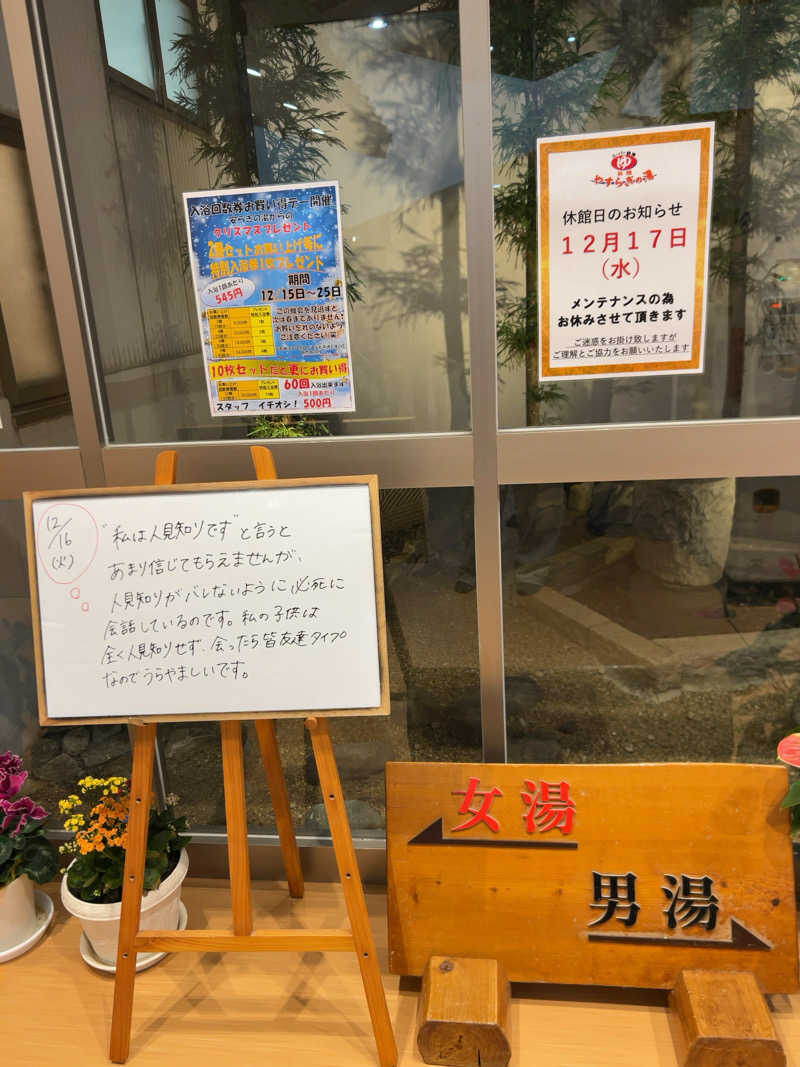 入浴回数券お買い得デー開催
安らぎの湯からの
クリスマスプレゼント
2冊セットお買い上げ毎に
特別入浴券1枚プレゼント
入浴1回あたり
545円
期間
12/15日〜25日
この機会を見逃すと
次は春までありません!
お買い忘れのないよう
ご注意ください(笑)
10枚セットだと更にお買い得
60回入浴出来ます
入浴1回あたり
スタッフ イチオシ! 500円
ゆ
やすらぎの湯
休館日のお知らせ
12月17日
(水)
メンテナンスの為
お休みさせて頂きます
ご迷惑をお掛け致しますが
ご理解とご協力をお願いいたします
12/16
(火)
"私は人見知りです"と言うと
あまり信じてもらえませんが、
人見知りがバレないように必死に
会話しているのです。私の子供は
全く人見知りせず、会ったら皆友達タイプ
なのでうらやましいです。
女湯
男湯